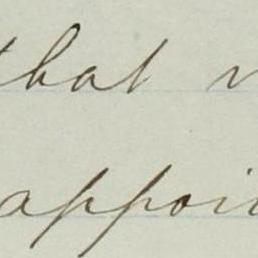 that
appoi